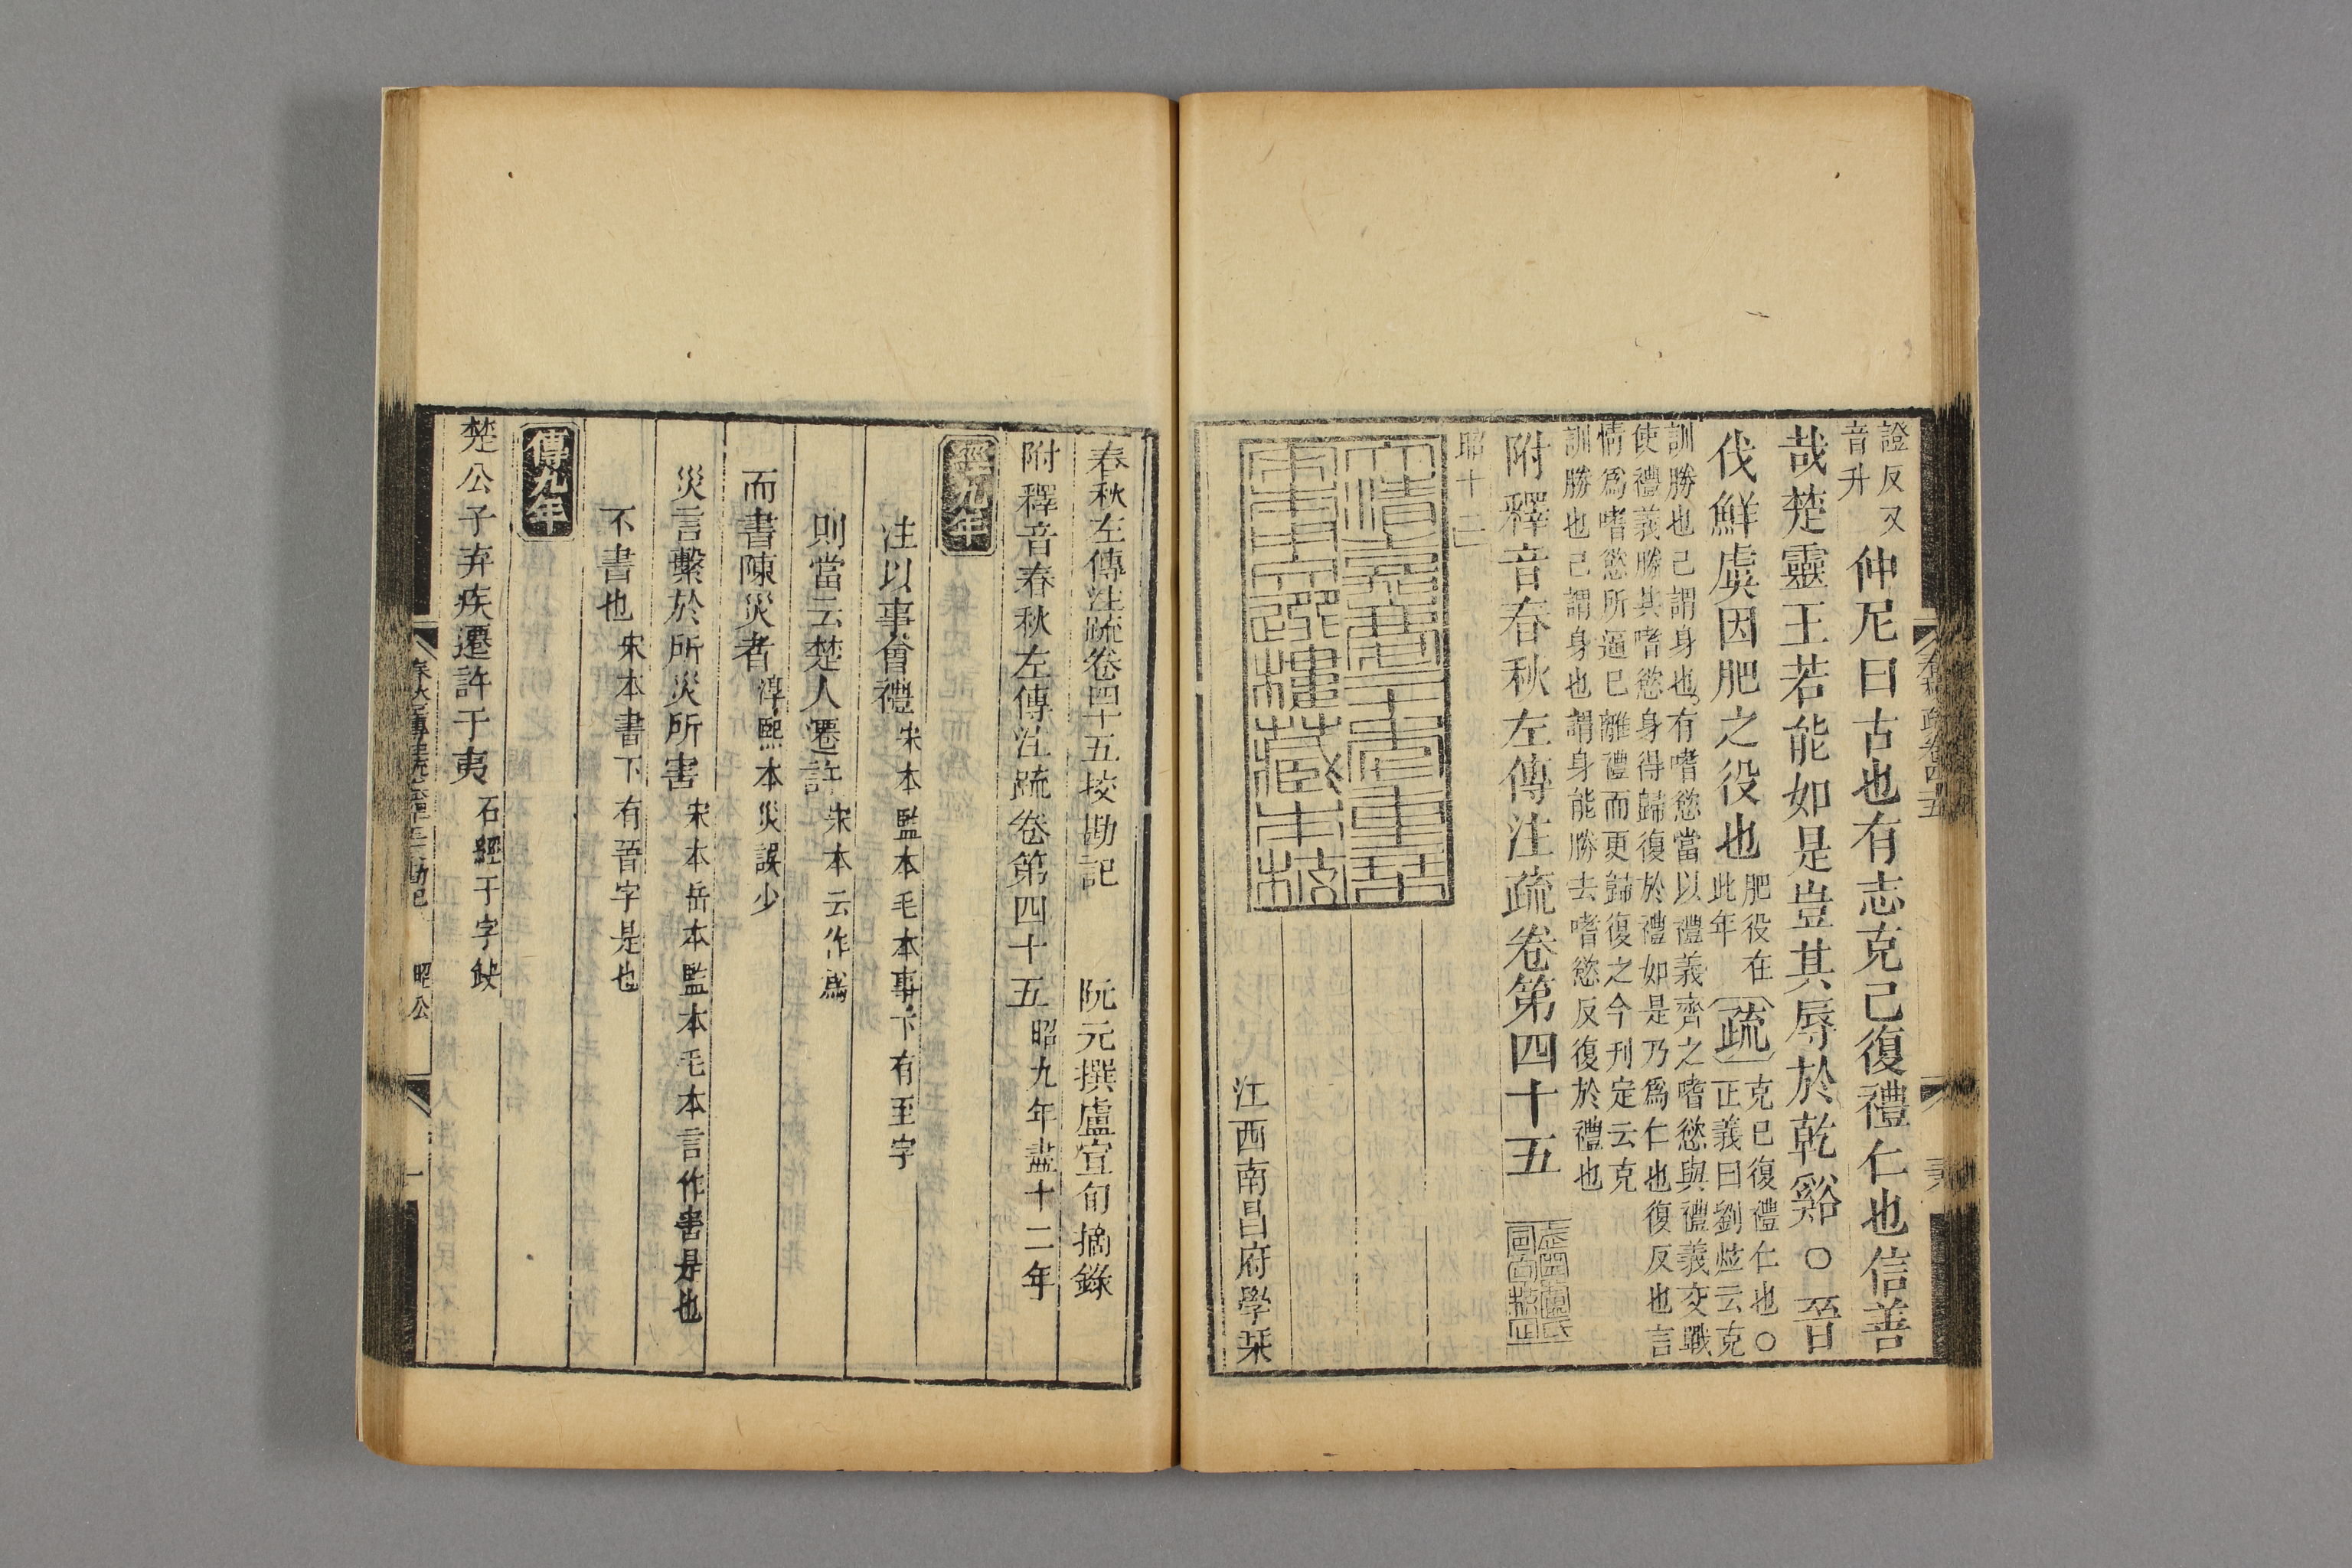 證反又
音升
仲尼曰古也有志克己復禮仁也信善
哉楚靈王若能如是豈其辱於乾谿○晉
伐鮮虞因肥之役也
肥役在
此年
疏
克已復禮仁也○
正義曰劉炫云克
訓勝也己謂身也有嗜慾當以禮義齊之嗜慾與禮義交戰
使禮義勝其嗜慾身得歸復於禮如是乃爲仁也復反也言
情爲嗜慾所逼已離禮而更歸復之今刊定云克
訓勝也己謂身也謂身能勝去嗜慾反復於禮也
附釋音春秋左傳注疏卷第四十五
昭十二
江西南昌府學栞
春秋左傳注疏卷四十五挍勘記 阮元撰盧宣旬摘錄
附釋音春秋左傳注疏卷第四十五 昭九年盡十二年
經九年
注以事會禮 宋本監本毛本事下有至字
則當云楚人遷許 宋本云作爲
而書陳災者 淳熙本災誤少
災言繫於所災所害 宋本岳本監本毛本言作害是也
不書也 宋本書下有晉字是也
傳九年
楚公子弃疾遷許于夷 石經于字缺
昭公
一